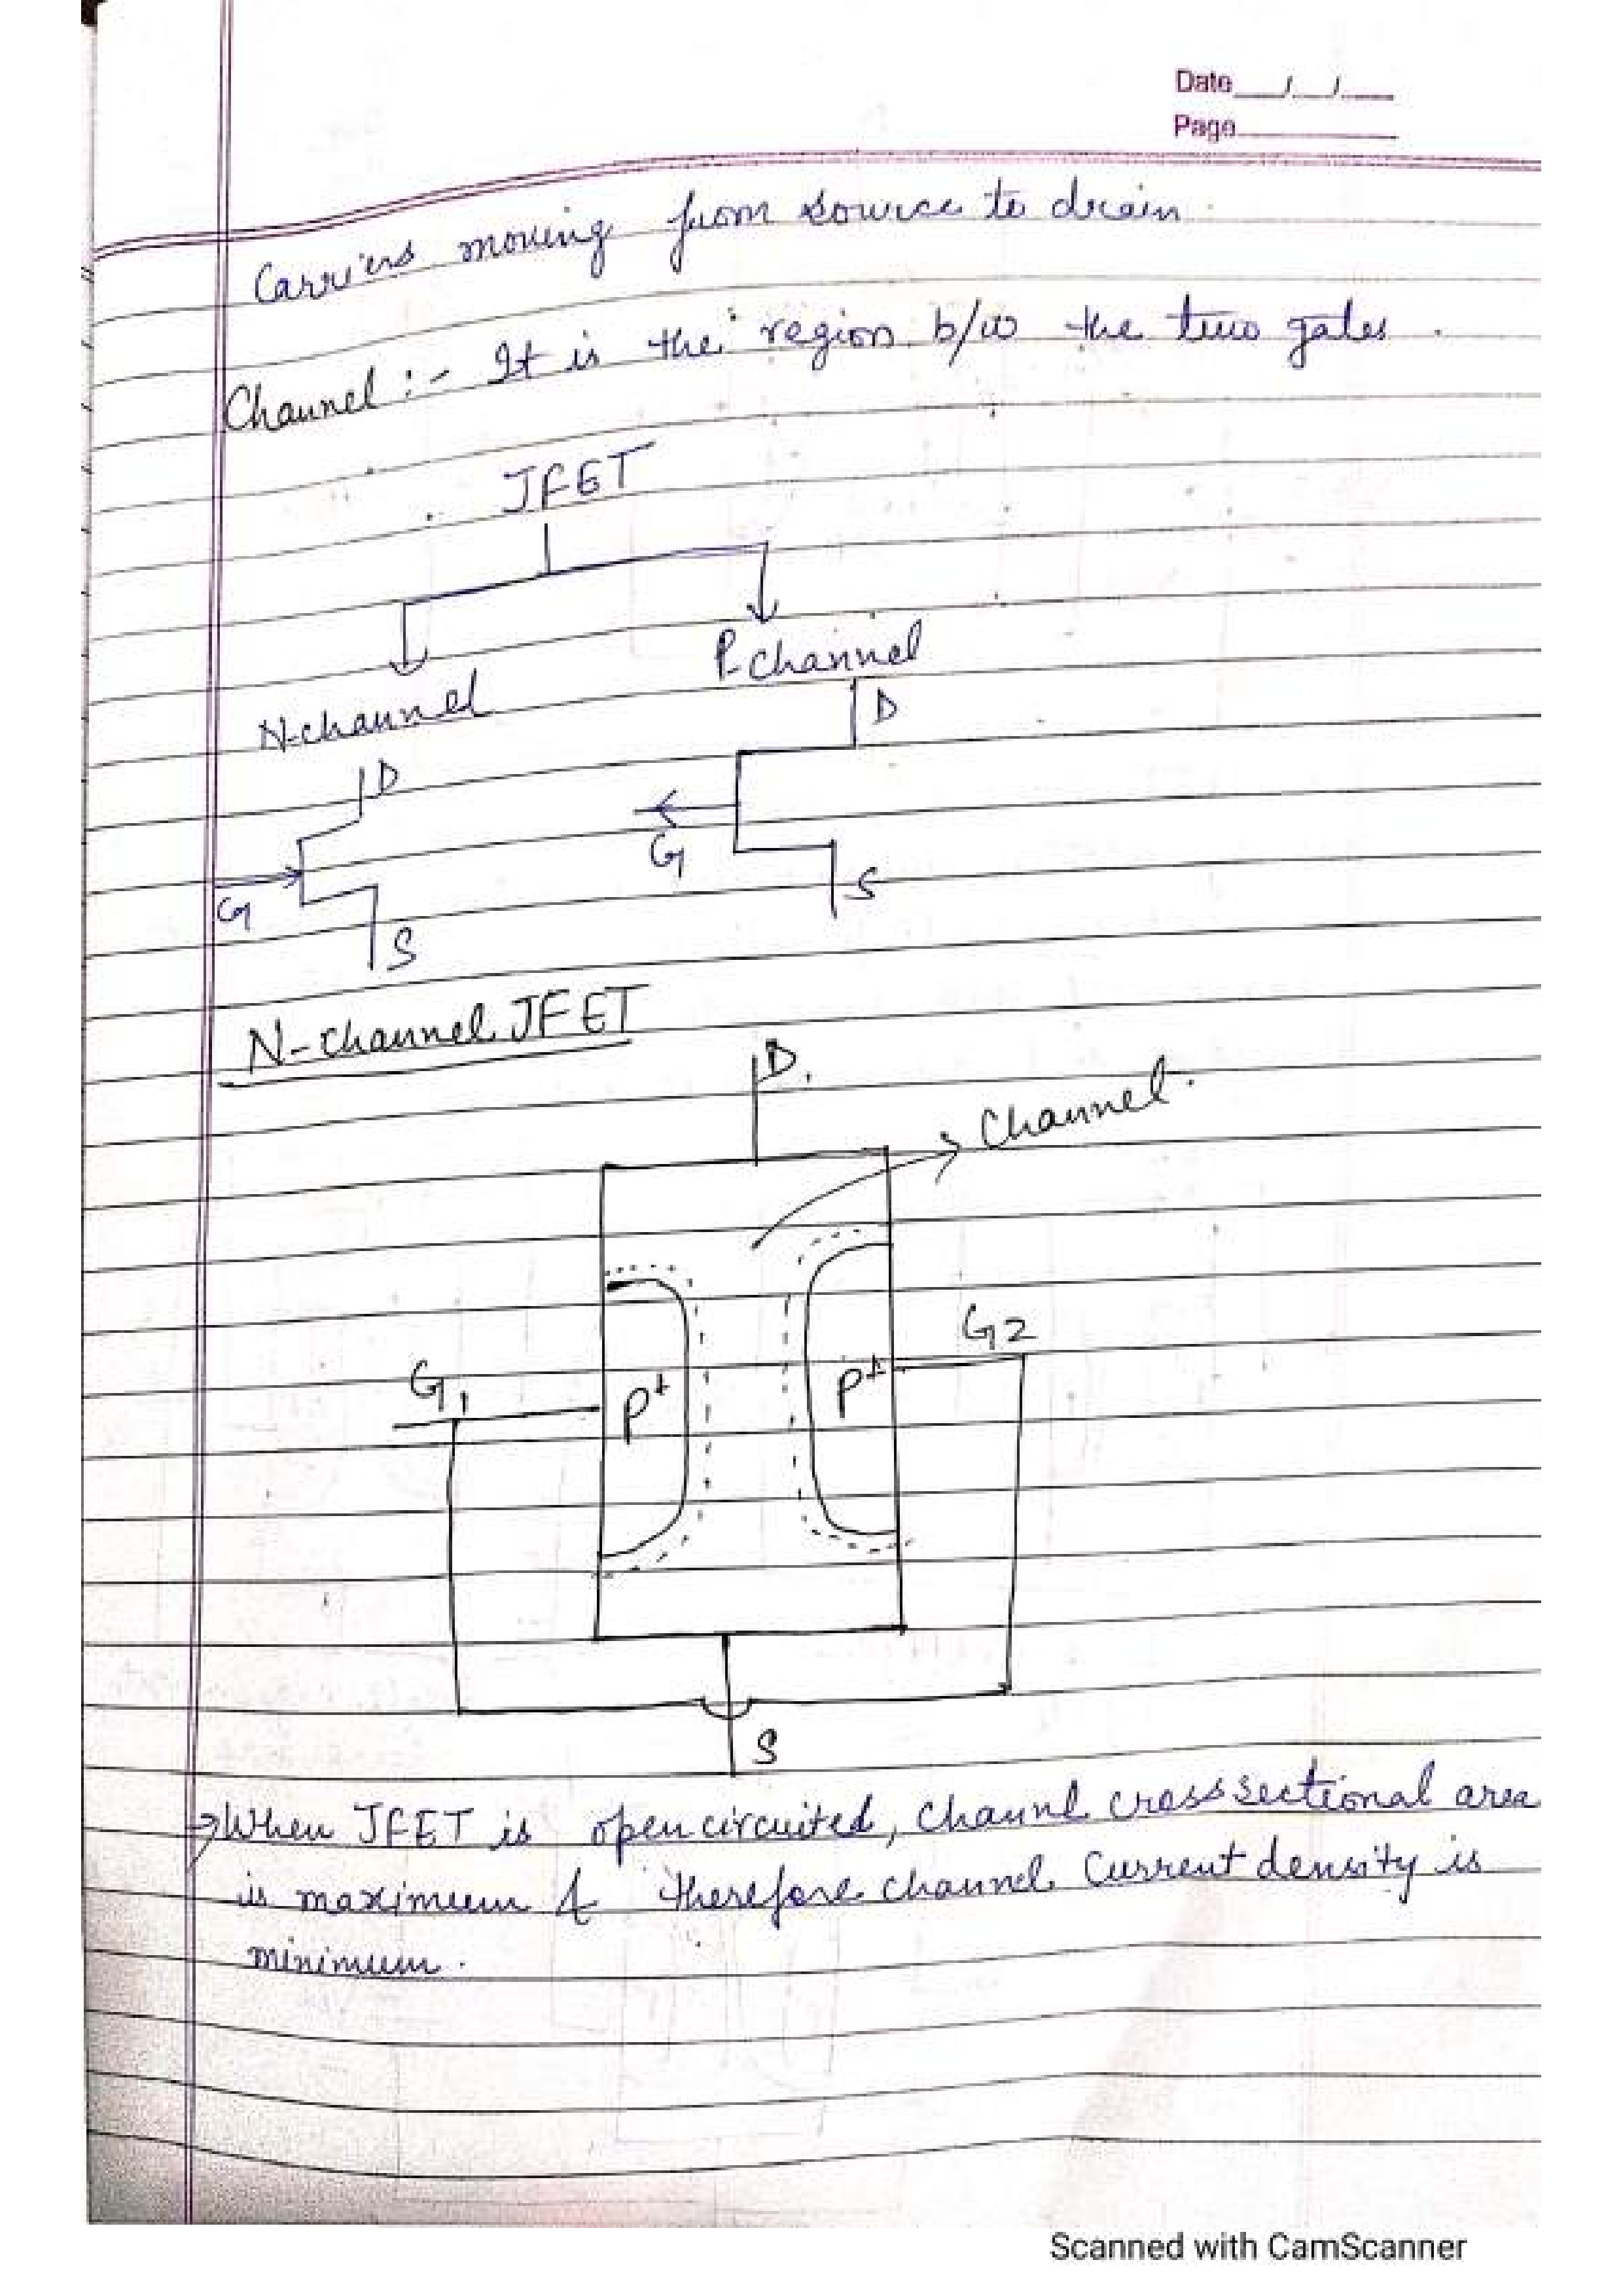 Date __/__/__
Page
Carriers moving from source to drain.
Channel :- It is the region b/w the two gates.
JFET
N-channel P-channel
D D
G S G S
N-channel JFET
D.
Channel.
G2
G1 P+ P+
S
→ When JFET is open circuited, Channl cross sectional area
is maximum & therefore channel Current density is
minimum.
Scanned with CamScanner